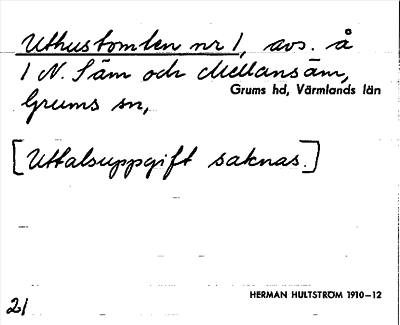 Uthustomten nr 1, avs. å
1 N. Säm och Mellansäm,
Grums hd, Värmlands län
Grums sn,
[Uttalsuppgift saknas.]
HERMAN HULTSTRÖM 1910–12
21